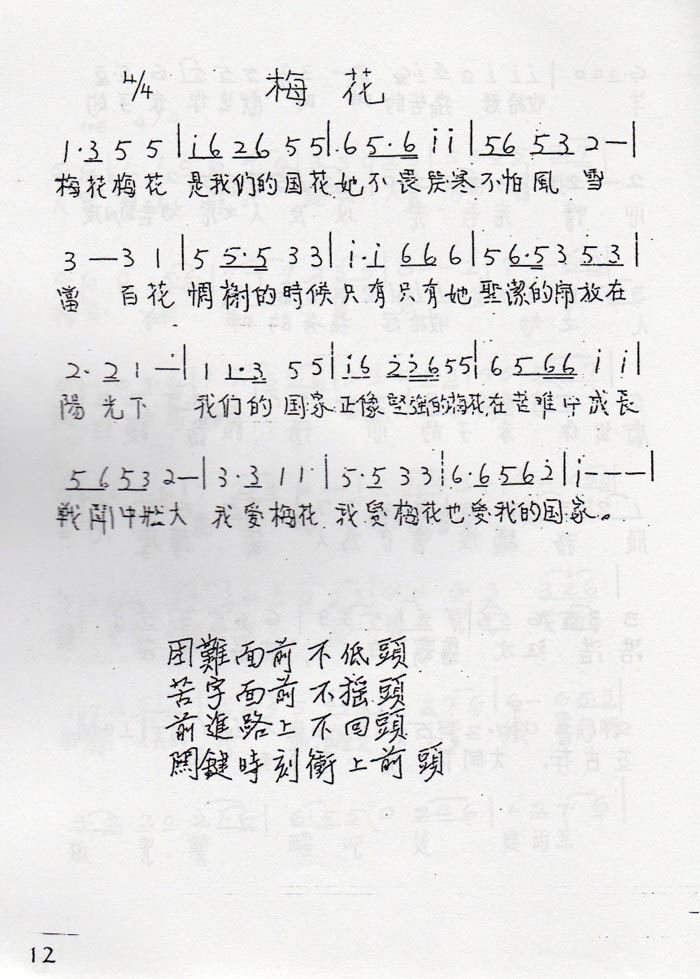 4/4 梅花
1·3 5 5 | i6 26 5 5 | 6 5·6 i i | 56 53 2 — |
梅花梅花 是我们的国花她不畏寒不怕風雪
3 — 3 1 | 5 5·5 3 3 | i·i 6 6 6 | 5 6·5 3 5 3 |
當 百花 惆榭的時候只有只有她聖潔的開放在
2· 2 1 — | 1 1·3 5 5 | i6 2265 5 | 6 5 66 i i |
陽光下 我们的国家正像堅強的梅花在苦难中成長
56 53 2 — | 3·3 1 1 | 5·5 3 3 | 6·6 5 6 2 | i - - - |
戰鬥中壯大 我爱梅花 我爱梅花也爱我的国家。
困難面前不低頭
苦字面前不摇頭
前進路上不回頭
関鍵時刻衝上前頭
12